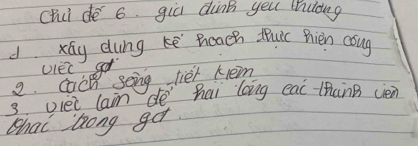 Chủ đề 6. gia đình yêu thương
1 xây dựng kế hoạch thực hiện công
việc gđ
2. Cách sống tiết kiệm
3 việc làm để hài lòng các thành viên
khác trong gđ.